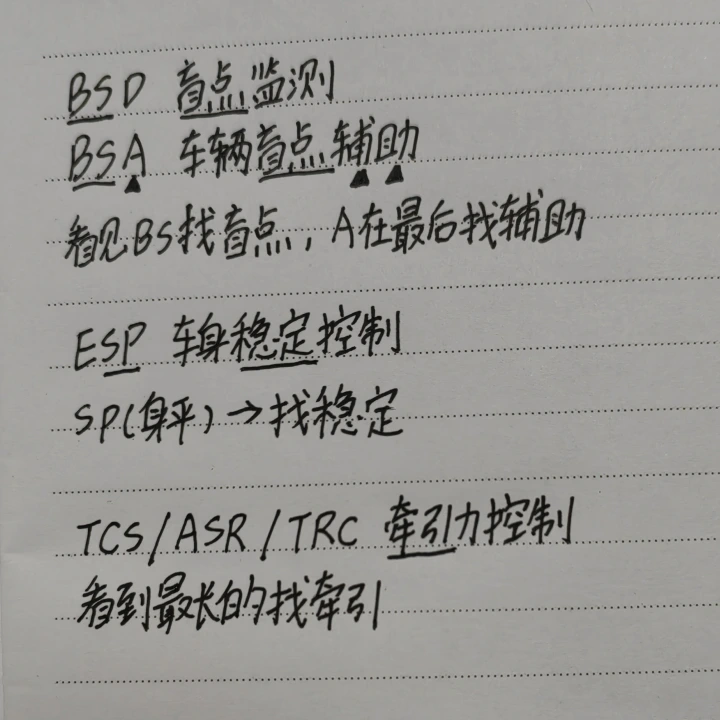 BSD 盲点监测
BSA 车辆盲点辅助
看见BS找盲点，A在最后找辅助
ESP 车身稳定控制
SP(身平)→找稳定
TCS/ASR/TRC 牵引力控制
看到最长的找牵引